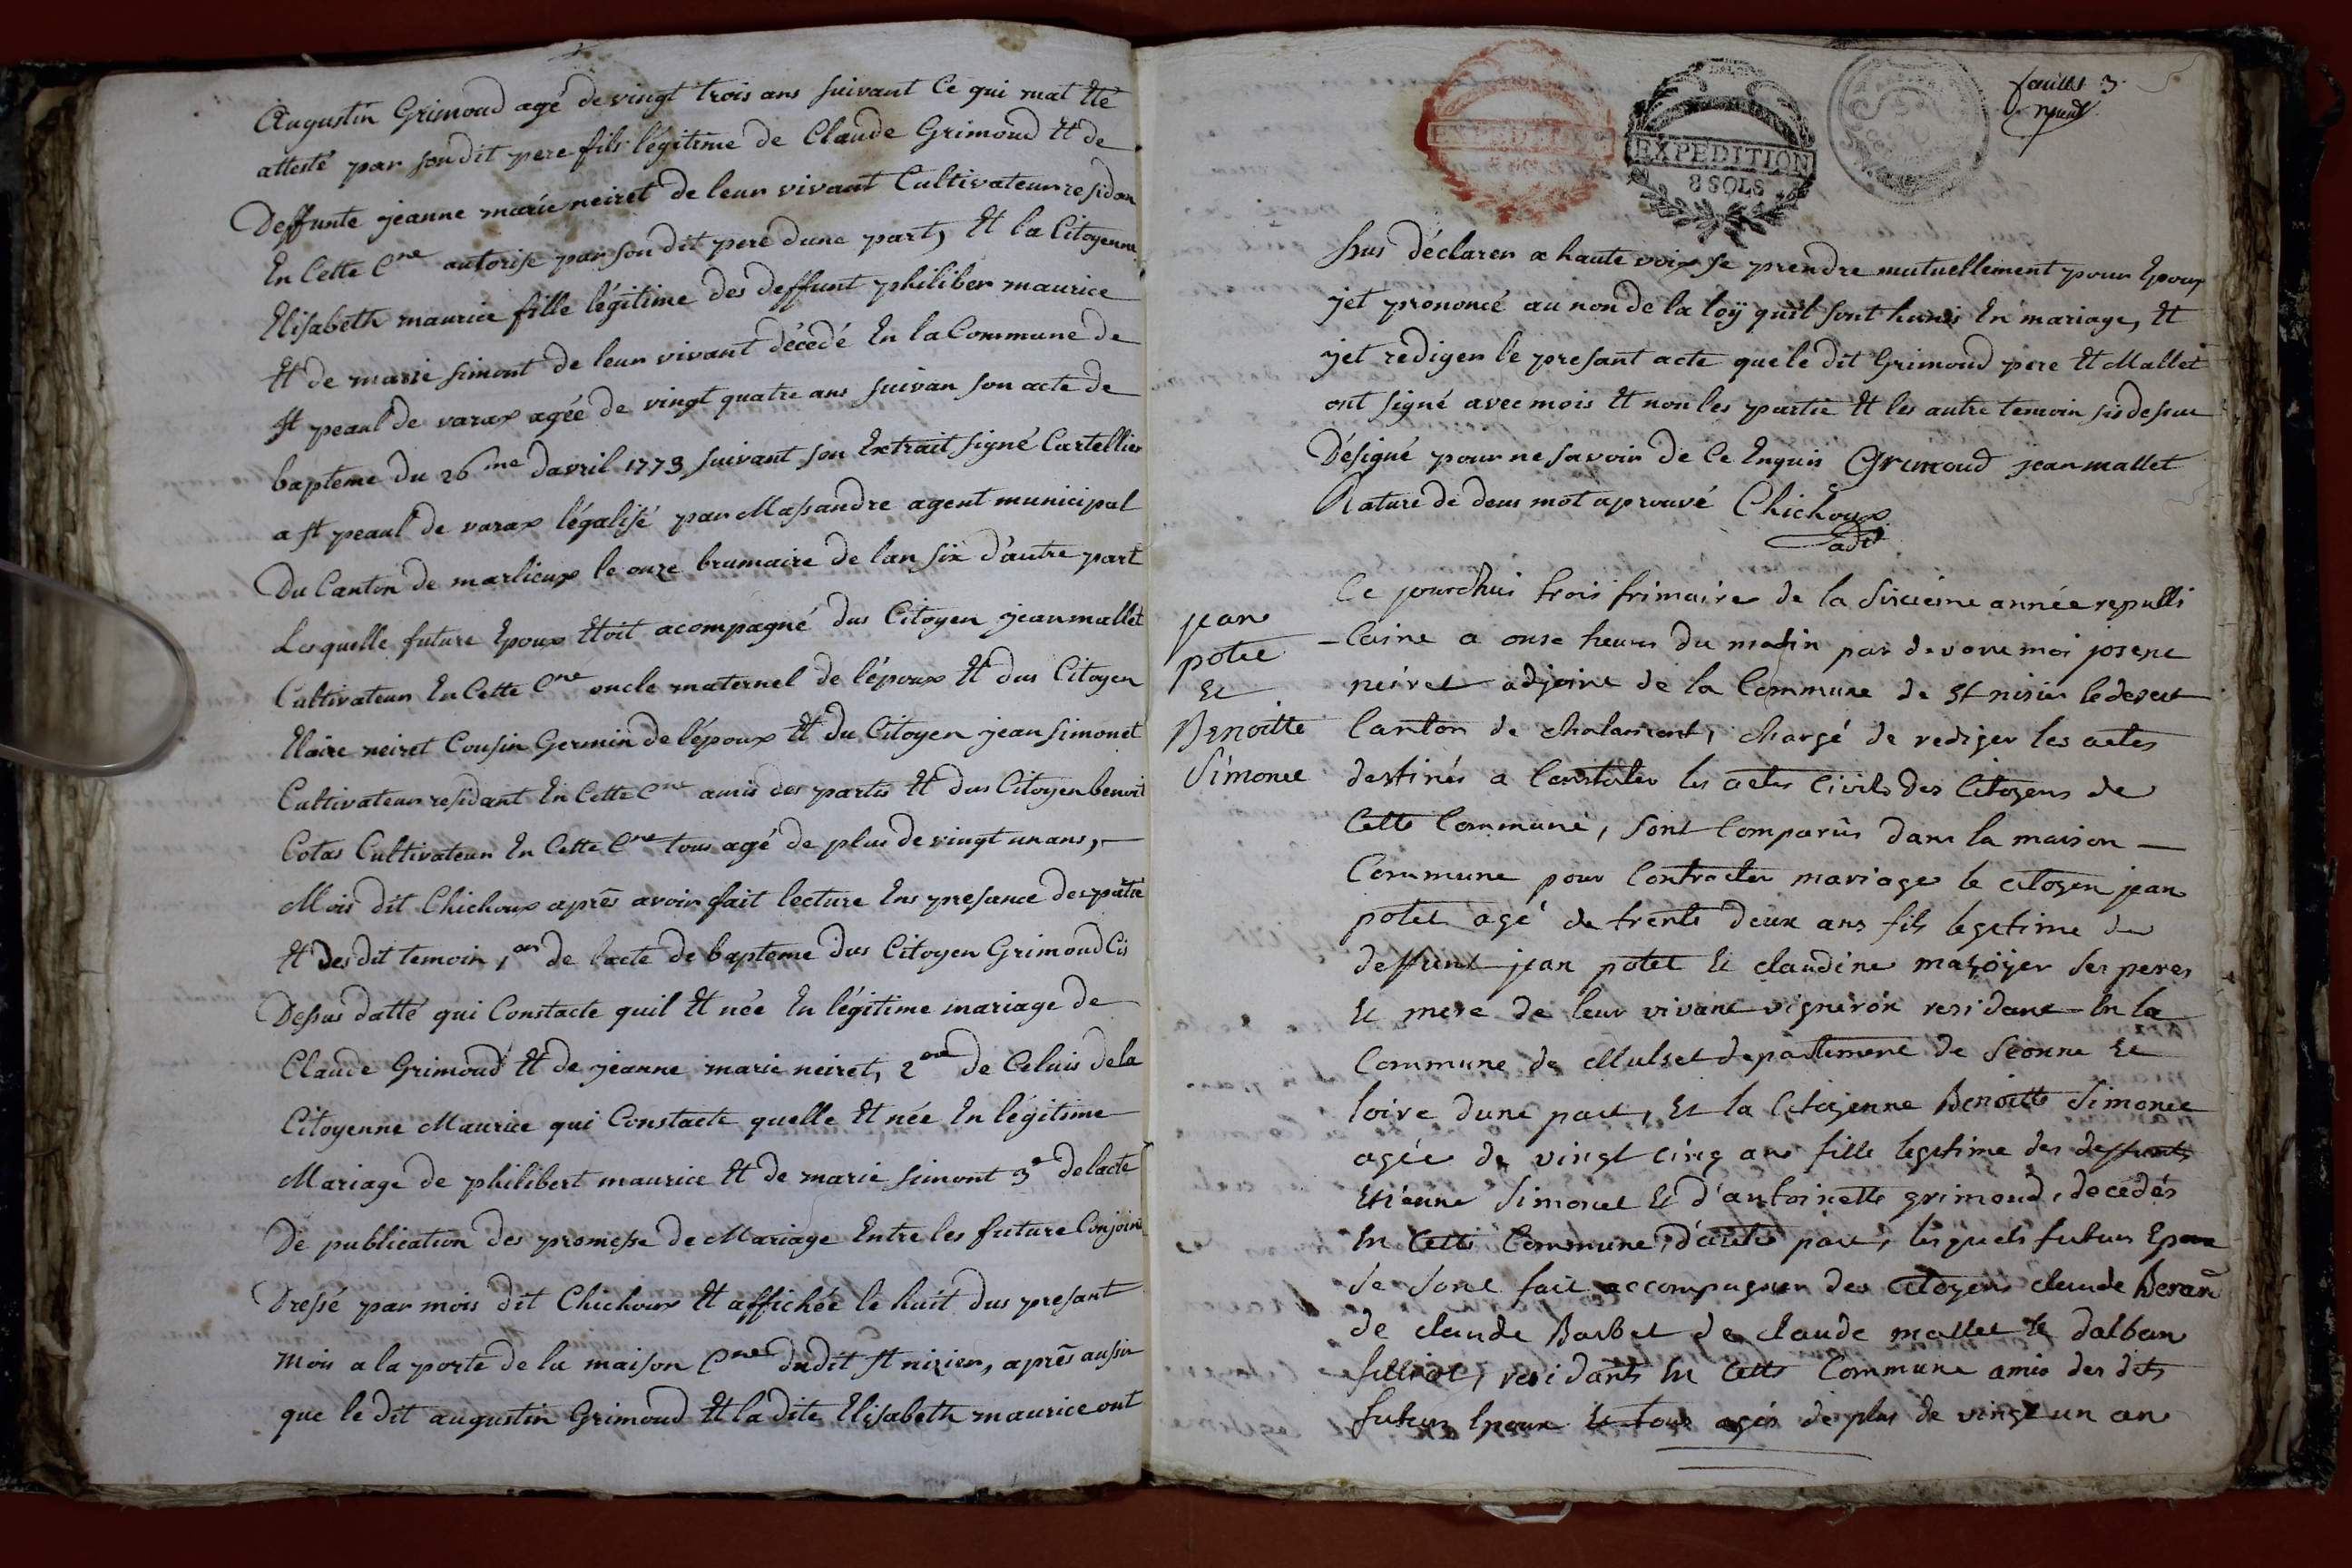 Augustin Grimoud agé de vingt trois ans suivant Ce qui mat Eté
attesté par son dit pere fils légitime de Claude Grimoud Et de
Deffunte jeanne marie neiret de leur vivant Cultivateur residan
En Cette Cne autorise par son dit pere dune part, Et la Citoyenne
Elisabeth maurice fille légitime des deffunt philiber maurice
Et de marie simont de leur vivant décedé En la Commune de
st peaul de varax agée de vingt quatre ans suivan son acte de
bapteme du 26me davril 1773 suivant son Extrait signé Cartellier
a st peaul de varax légalisé par Masandre agent municipal
Du Canton de marlieux le onze brumaire de lan six d'autre part
Lesquelle future Epoux Etoit acompagné dus Citoyen jean mallet
Cultivateur En Cette Cne oncle maternel de l'époux Et dus Citoyen
Elaire neiret Cousin Germin de l'époux Et du Citoyen jean simonet
Cultivateur residant En Cette Cne amis des partis Et dus Citoyen benoit
Cotas Cultivateur En Cette Cne tous agé de plus de vingt un ans,
Mois dit Chichoux aprês avoir fait lecture Ens presance des partie
Et des dit temoin, 1er de lacte de bapteme dus Citoyen Grimoud Cis
Desus datté qui Constacte quil Et née En légitime mariage de
Claude Grimoud Et de jeanne marie neiret, 2me de Celuis de la
Citoyenne Maurice qui Constacte quelle Et née En légitime
Mariage de philibert maurice Et de marie simont 3e de lacte
De publication des promesse de Mariage Entre les future Conjoin
Dressé par mois dit Chichoux Et affichée le huit dus presant
mois a la porte de la maison Cne dudit st nizier, aprês ausin
que le dit augustin Grimoud Et la dite Elisabeth maurice ont
feuillet 3
EXPEDITION
8 SOLS
EXPEDITION
8 SOLS
sus déclarer a haute voix se prendre mutuellement pour Epoux
jet prononcé au non de la loÿ quil sont hunis En mariage, Et
jet rediger le presant acte que le dit Grimoud pere Et Mallet
ont signé avec mois Et non les partie Et les autre temoin sis desus
Désigné pour ne savoir de Ce Enquis Grimoud jean mallet
Rature de deus mot aprouvé Chichoux
adt
Ce jourdhui trois frimaire de la sixieme année republi
jean
potet
Et
Benoitte
Simonet
-caine a onze heures du matin par devant moi josepe
neiret adjoint de la Commune de st nisier le desert
Canton de chalamont, chargé de rediger les actes
destinés a Constater les actes Civils des Citoyens de
Cette Commune, sont Comparûs dans la maison
Commune pour Contracter mariage le citoyen jean
potet agé de trente deux ans fils legetime de
deffunt jean potet Et claudine mazoyer ses peres
Et mere de leur vivant vigneron residant En la
Commune de Mulset departement de Seonne Et
loire dune part, Et la Citoyenne Benoitte Simonet
agée de vingt cinq ans fille legetime des deffunts
Etienne Simonet Et d'antoinette grimoud, decedés
En Cette Commune, d'autre part, lesquels futurs Epoux
se sont fait accompagner des citoyens claude Beran
de claude Barbet de claude mallet Et dalban
filliot, residants En Cette Commune amis des dits
futurs Epoux Et tous agés de plus de vingt un an